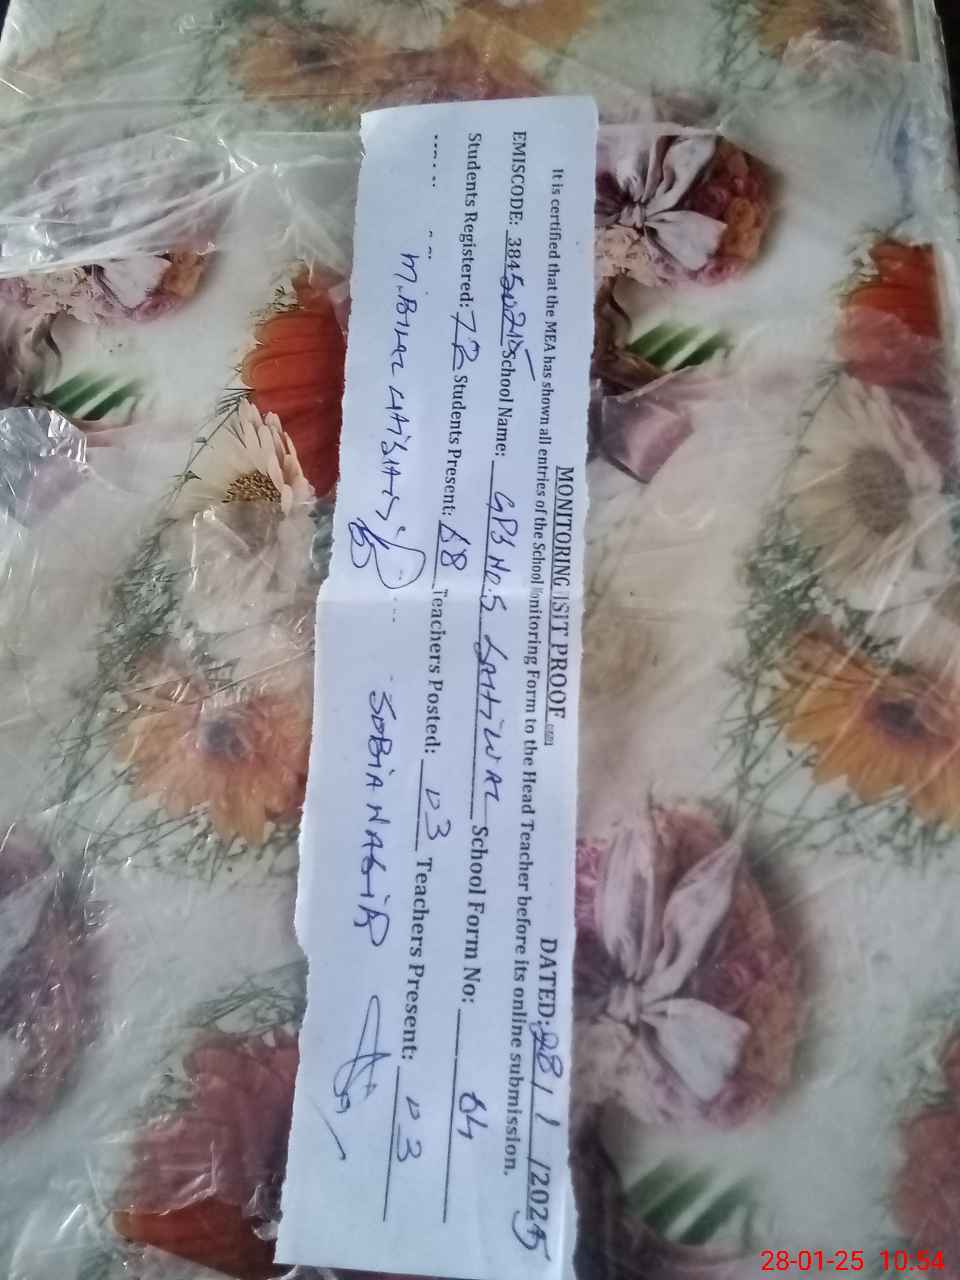 MONITORING ISIT PROOF DATED: 28/1/2025
It is certified that the MEA has shown all entries of the School onitoring Form to the Head Teacher before its online submission.
EMISCODE: 384 School Name: GPS No.5 SAHIWAL School Form No: 64
Students Registered: 72 Students Present: 68 Teachers Posted: 03 Teachers Present: 03
M. BILAL SOBIA NAGIR
28-01-25 10:54